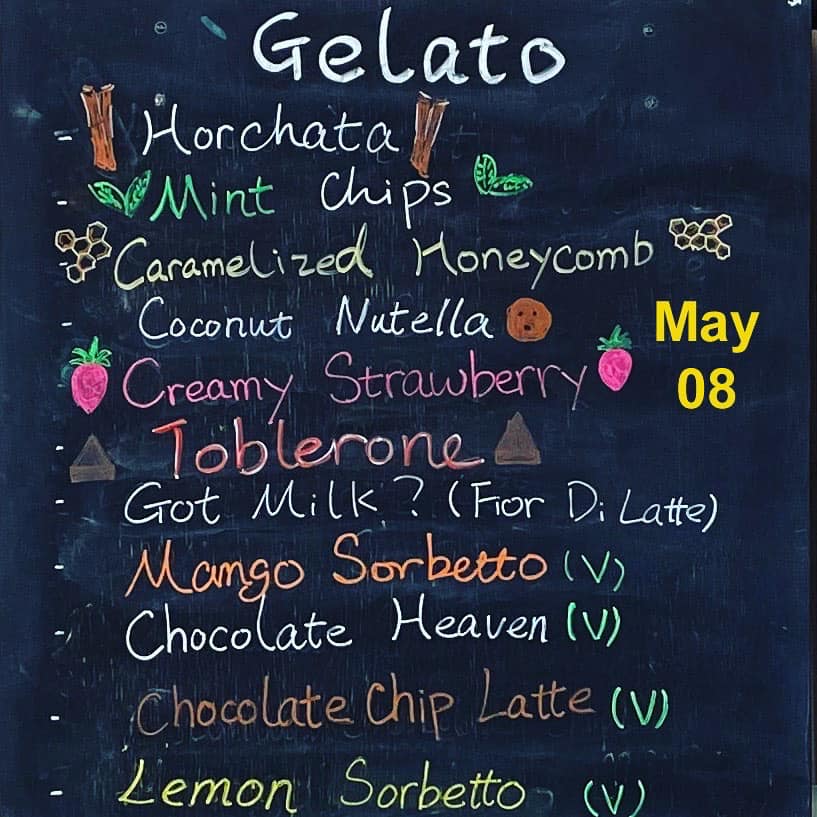 Gelato
- Horchata
- Mint Chips
- Caramelized Honeycomb
- Coconut Nutella
Creamy Strawberry
- Toblerone
- Got Milk? (Fior Di Latte)
- Mango Sorbetto (V)
- Chocolate Heaven (V)
- Chocolate Chip Latte (V)
- Lemon Sorbetto (V)
May
08